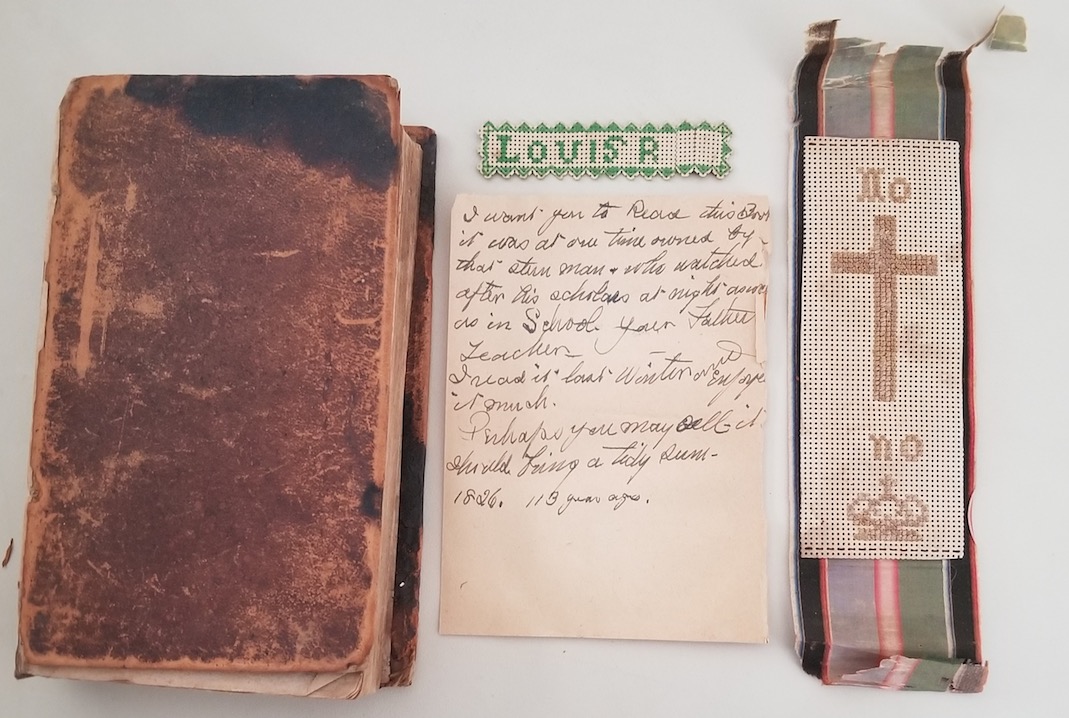 LOUISR
I want you to Read this Book
it was at one time owned by
that stern man & who watched
after his scholars at night
as in School. your Father
Teacher
I read it last Winter & Enjoyed
it much.
Perhaps you may sell it
should bring a tidy sum-
1826. 113 years ago.
No
no